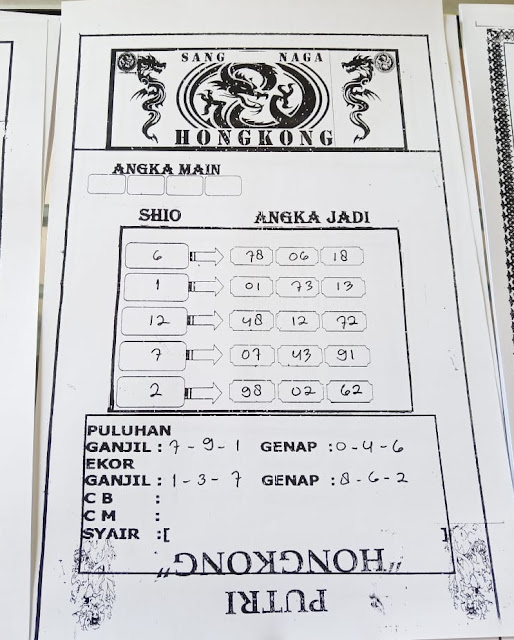 SANG NAGA
HONGKONG
ANGKA MAIN
SHIO ANGKA JADI
6 78 06 18
1 01 73 13
12 48 12 72
7 07 43 91
2 98 02 62
PULUHAN
GANJIL : 7 - 9 - 1 GENAP : 0 - 4 - 6
EKOR
GANJIL : 1 - 3 - 7 GENAP : 8 - 6 - 2
C B :
C M :
SYAIR :[ ]
"HONGKONG"
PUTRI